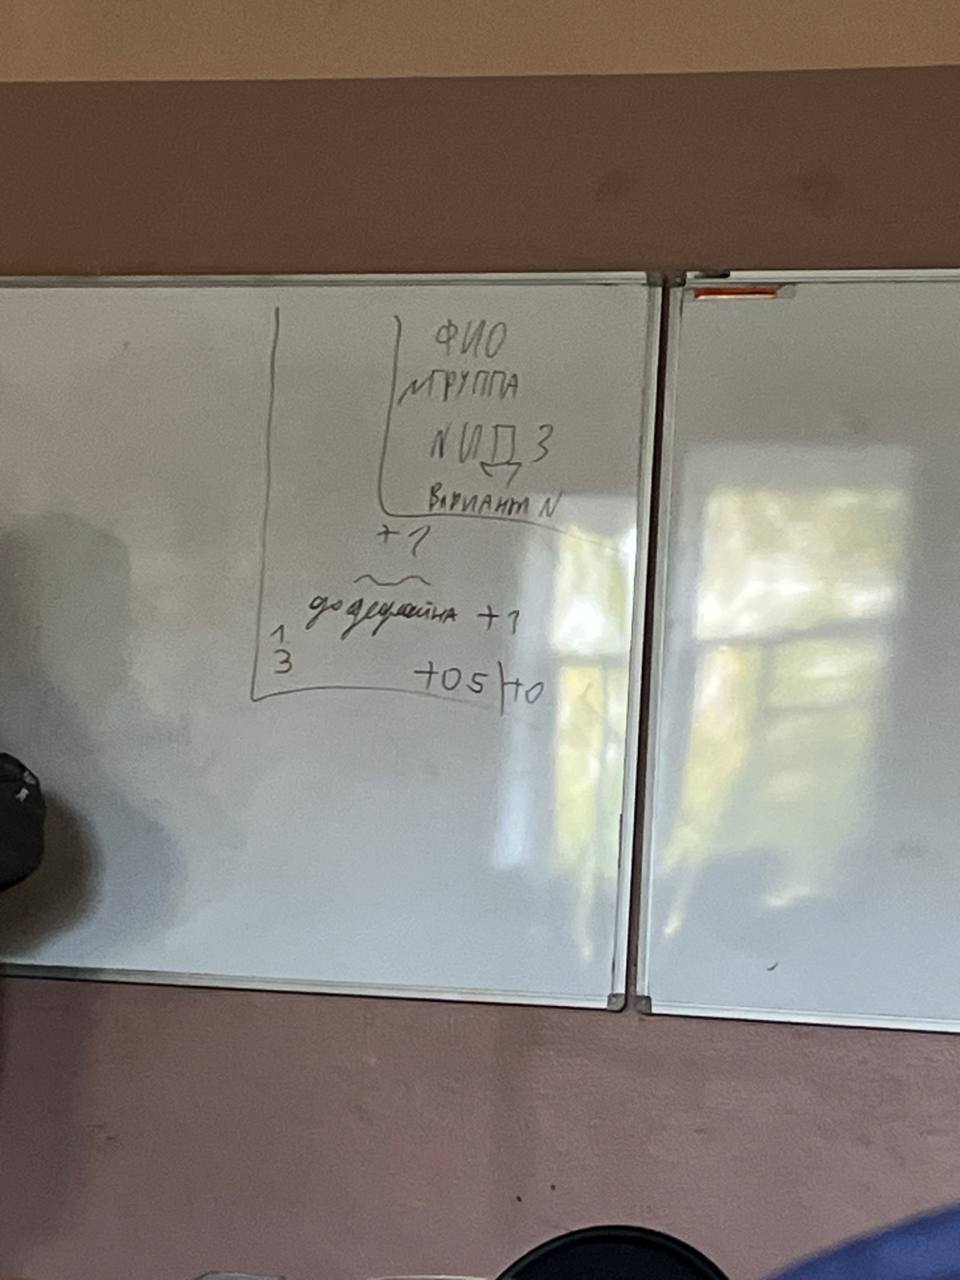 ФИО
N ГРУППА
N ИДЗ
Вариант N
+1
до дедлайна +1
1
3
+0 5 | +0